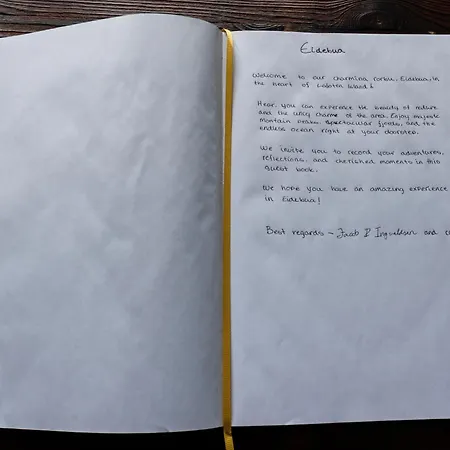 Eidebua
Welcome to our charming rorbu, Eidebua, in
the heart of Lofoten Island!
Hear, you can experience the beauty of nature
and the uncy charme of the area. Enjoy majestic
montain peaks, spectacular fjords, and the
endless ocean right at your doorstep.
We invite you to record your adventures,
reflections, and cherished moments in this
guest book.
We hope you have an amazing experience
in Eidebua!
Best regards - Ingvaldsen and